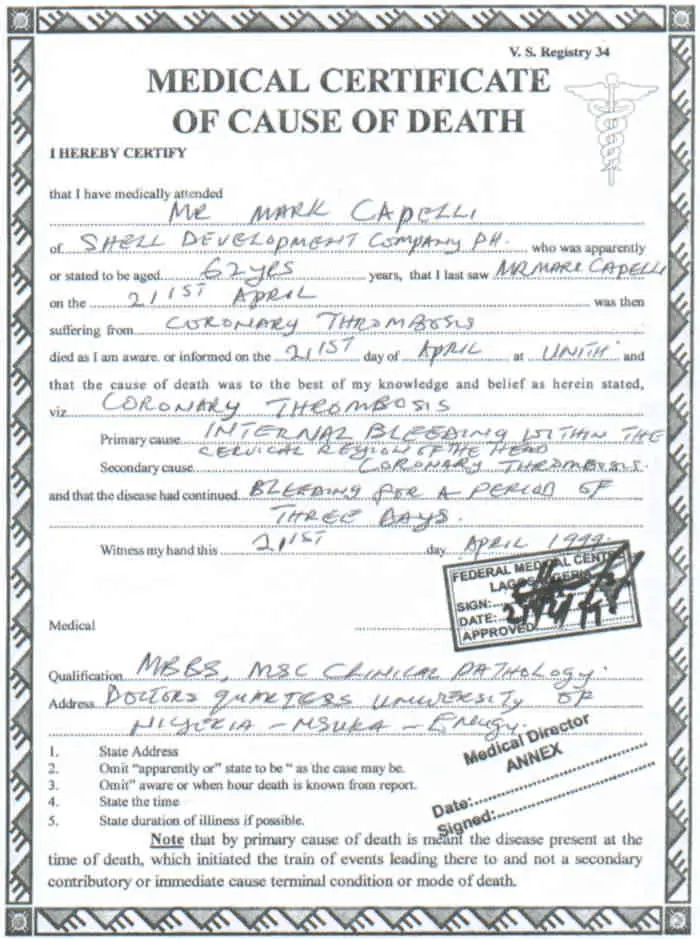 V. S. Registry 34
MEDICAL CERTIFICATE
OF CAUSE OF DEATH
I HEREBY CERTIFY
that I have medically attended
MR MARK CAPELLI
of SHELL DEVELOPMENT COMPANY PH. who was apparently
or stated to be aged 62 YRS years, that I last saw MR MARK CAPELLI
on the 21ST APRIL was then
suffering from CORONARY THROMBOSIS
died as I am aware. or informed on the 21ST day of APRIL at UNTH and
that the cause of death was to the best of my knowledge and belief as herein stated,
viz CORONARY THROMBOSIS
Primary cause INTERNAL BLEEDING WITHIN THE
CERVICAL REGION OF THE HEAD
Secondary cause CORONARY THROMBOSIS.
and that the disease had continued BLEEDING FOR A PERIOD OF
THREE DAYS.
Witness my hand this 21ST day APRIL 1999.
FEDERAL MEDICAL CENT
LAGOS
SIGN:
DATE:
APPROVED
Medical
Qualification MBBS, MSC CLINICAL PATHOLOGY.
Address DOCTORS QUARTERS UNIVERSITY OF
NIGERIA - NSUKA - ENUGU.
Medical Director
ANNEX
1. State Address
2. Omit "apparently or" state to be " as the case may be.
3. Omit" aware or when hour death is known from report.
4. State the time
5. State duration of illness if possible.
Date:
Signed:
Note that by primary cause of death is meant the disease present at the
time of death, which initiated the train of events leading there to and not a secondary
contributory or immediate cause terminal condition or mode of death.